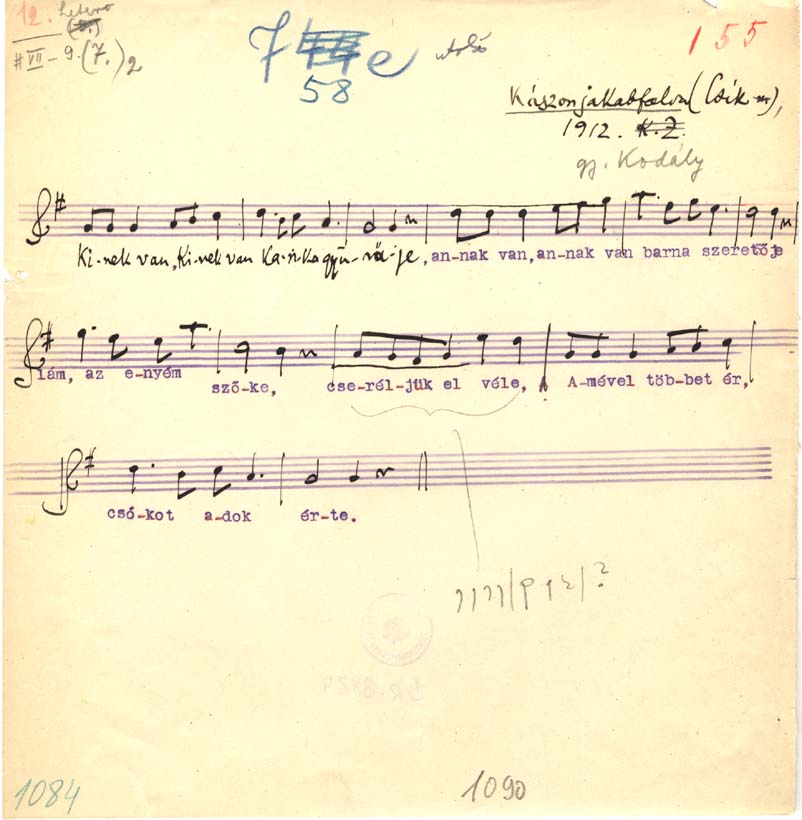 12. hetero
# VII - 9. (7.)2
7 e utolsó
58
155
Kászonjakabfalva (Csik m),
1912. K. Z.
gy. Kodály
Ki-nek van, Ki-nek van Ka-ri-ka gyű-rű-je, an-nak van, an-nak van barna szeretője
lám, az e-nyém
sző-ke, cse-rél-jük el véle, A-mével töb-bet ér,
csó-kot a-dok ér-te.
?
1084
1090